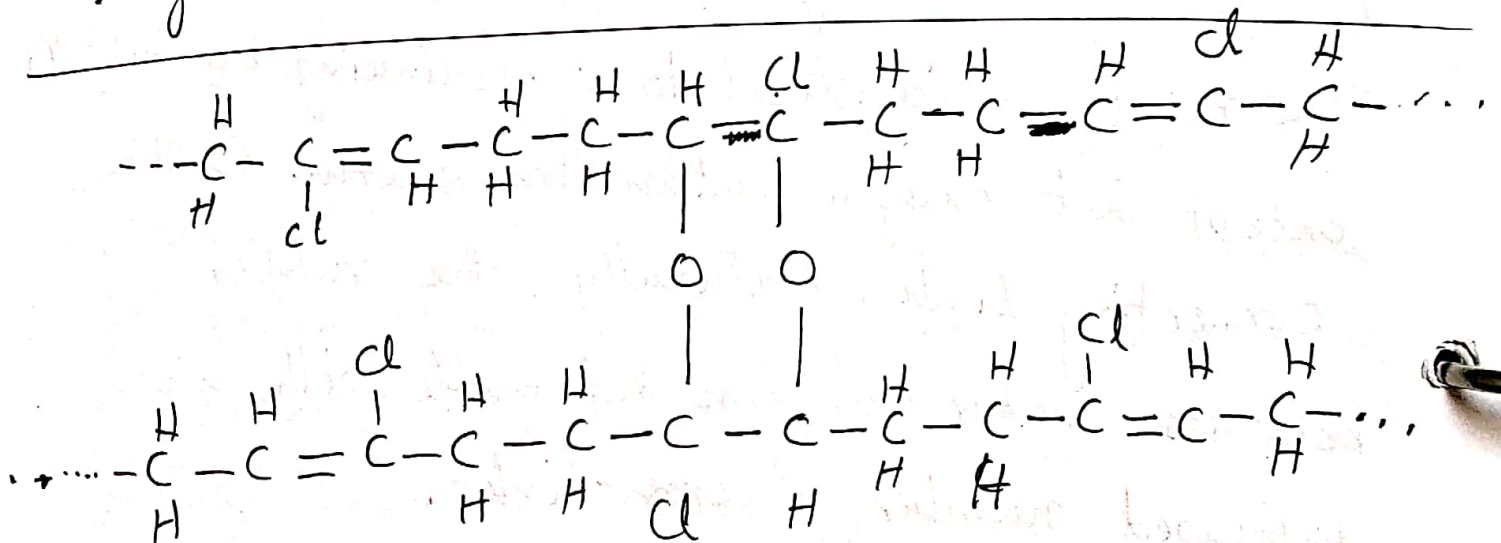 H H H Cl H H H Cl H
---C- C = C - C - C - C = C - C - C = C = C - C - ...
H Cl H H H H H H
O O
Cl H H H Cl H H
H H
..+....-C - C = C - C - C - C - C - C - C - C = C - C - ...
H H H Cl H H H H